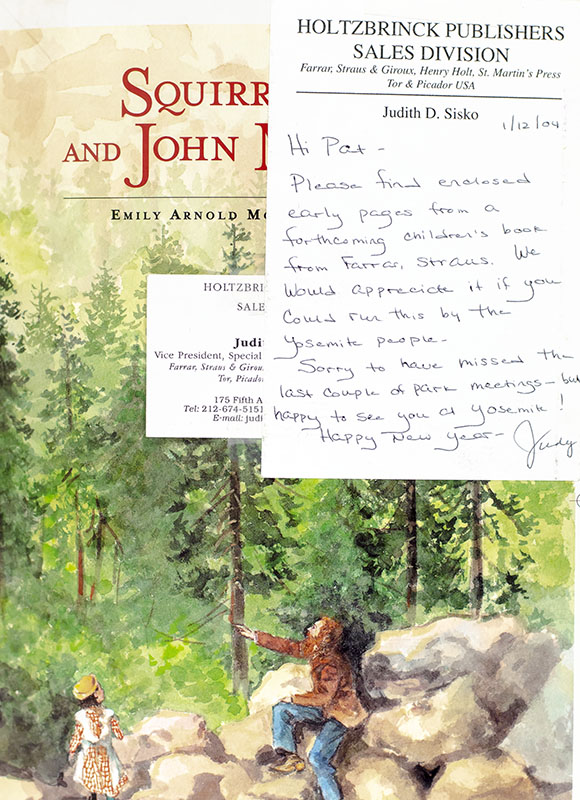 SQUIRR
AND JOHN M
EMILY ARNOLD MC
HOLTZBRINCK PUBLISHERS
SALES DIVISION
Farrar, Straus & Giroux, Henry Holt, St. Martin's Press
Tor & Picador USA
Judith D. Sisko
1/12/04
Hi Pat -
Please find enclosed
early pages from a
forthcoming children's book
from Farrar, Straus. We
would appreciate it if you
could run this by the
Yosemite people -
Sorry to have missed the
last couple of park meetings - but
happy to see you at Yosemite!
Happy New Year -
Judy
HOLTZBRINC
SALE
Judit
Vice President, Special
Farrar, Straus & Giroux
Tor, Picado
175 Fifth A
Tel: 212-674-5151
E-mail: judi